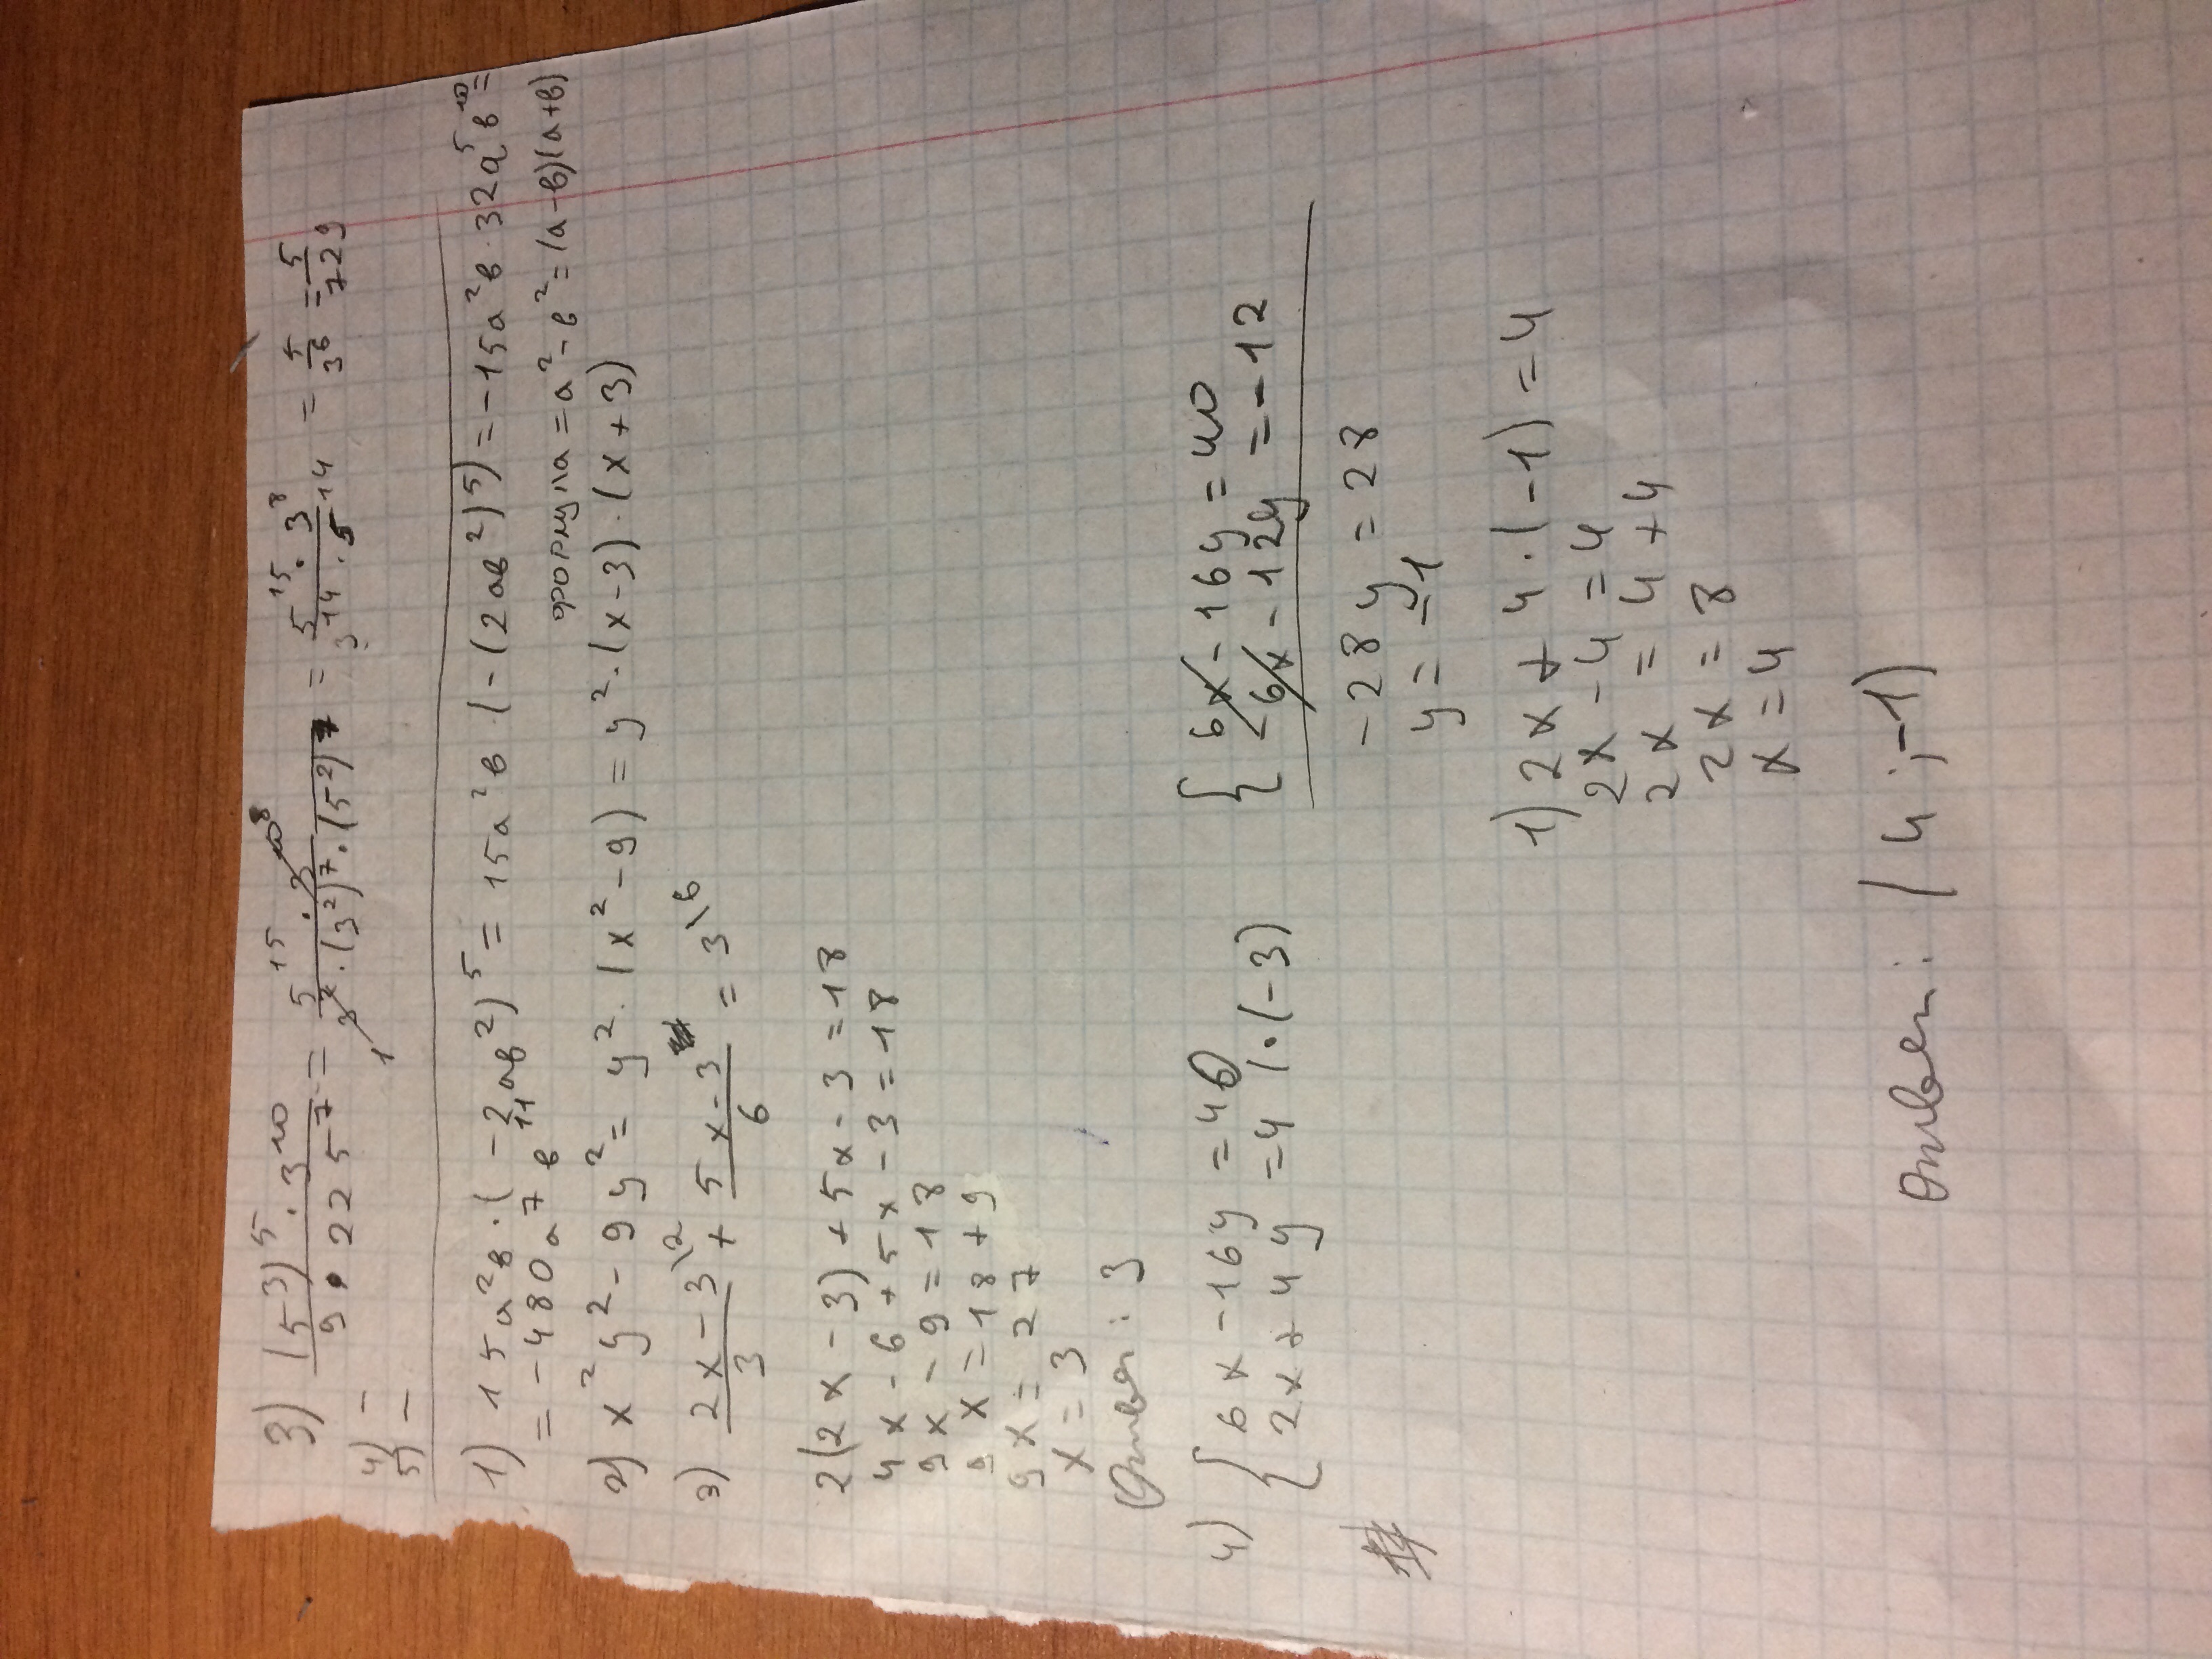 3) (5³)⁵ · 3¹⁰ / 9 · 225⁷ = 5¹⁵ · 3¹⁰ ⁸ / 3² · (3²)⁷ · (5²)⁷ = 5¹⁵ · 3⁸ / 3¹⁴ · 5¹⁴ = 5 / 3⁶ = 5 / 729
1
4) –
5) –
1) 15a²в · (-2ав²)⁵ = 15a²в · (-(2ав²)5) = -15a²в · 32a⁵в¹⁰ =
= -480a⁷в¹¹
формула = a² - в² = (a-в)(a+в)
2) x²y² - 9y² = y² · (x² - 9) = y² · (x-3) · (x+3)
3) 2x-3\2 / 3 + 5x-3 / 6 = 3\6
2(2x-3) + 5x-3 = 18
4x-6+5x-3 = 18
9x-9 = 18
9x = 18+9
9x = 27
x = 3
Ответ: 3
4) { 6x - 16y = 40
2x + 4y = 4 | · (-3)
{ 6x - 16y = 40
-6x - 12y = -12
-28y = 28
y = -1
1) 2x + 4 · (-1) = 4
2x - 4 = 4
2x = 4+4
2x = 8
x = 4
Ответ: (4; -1)